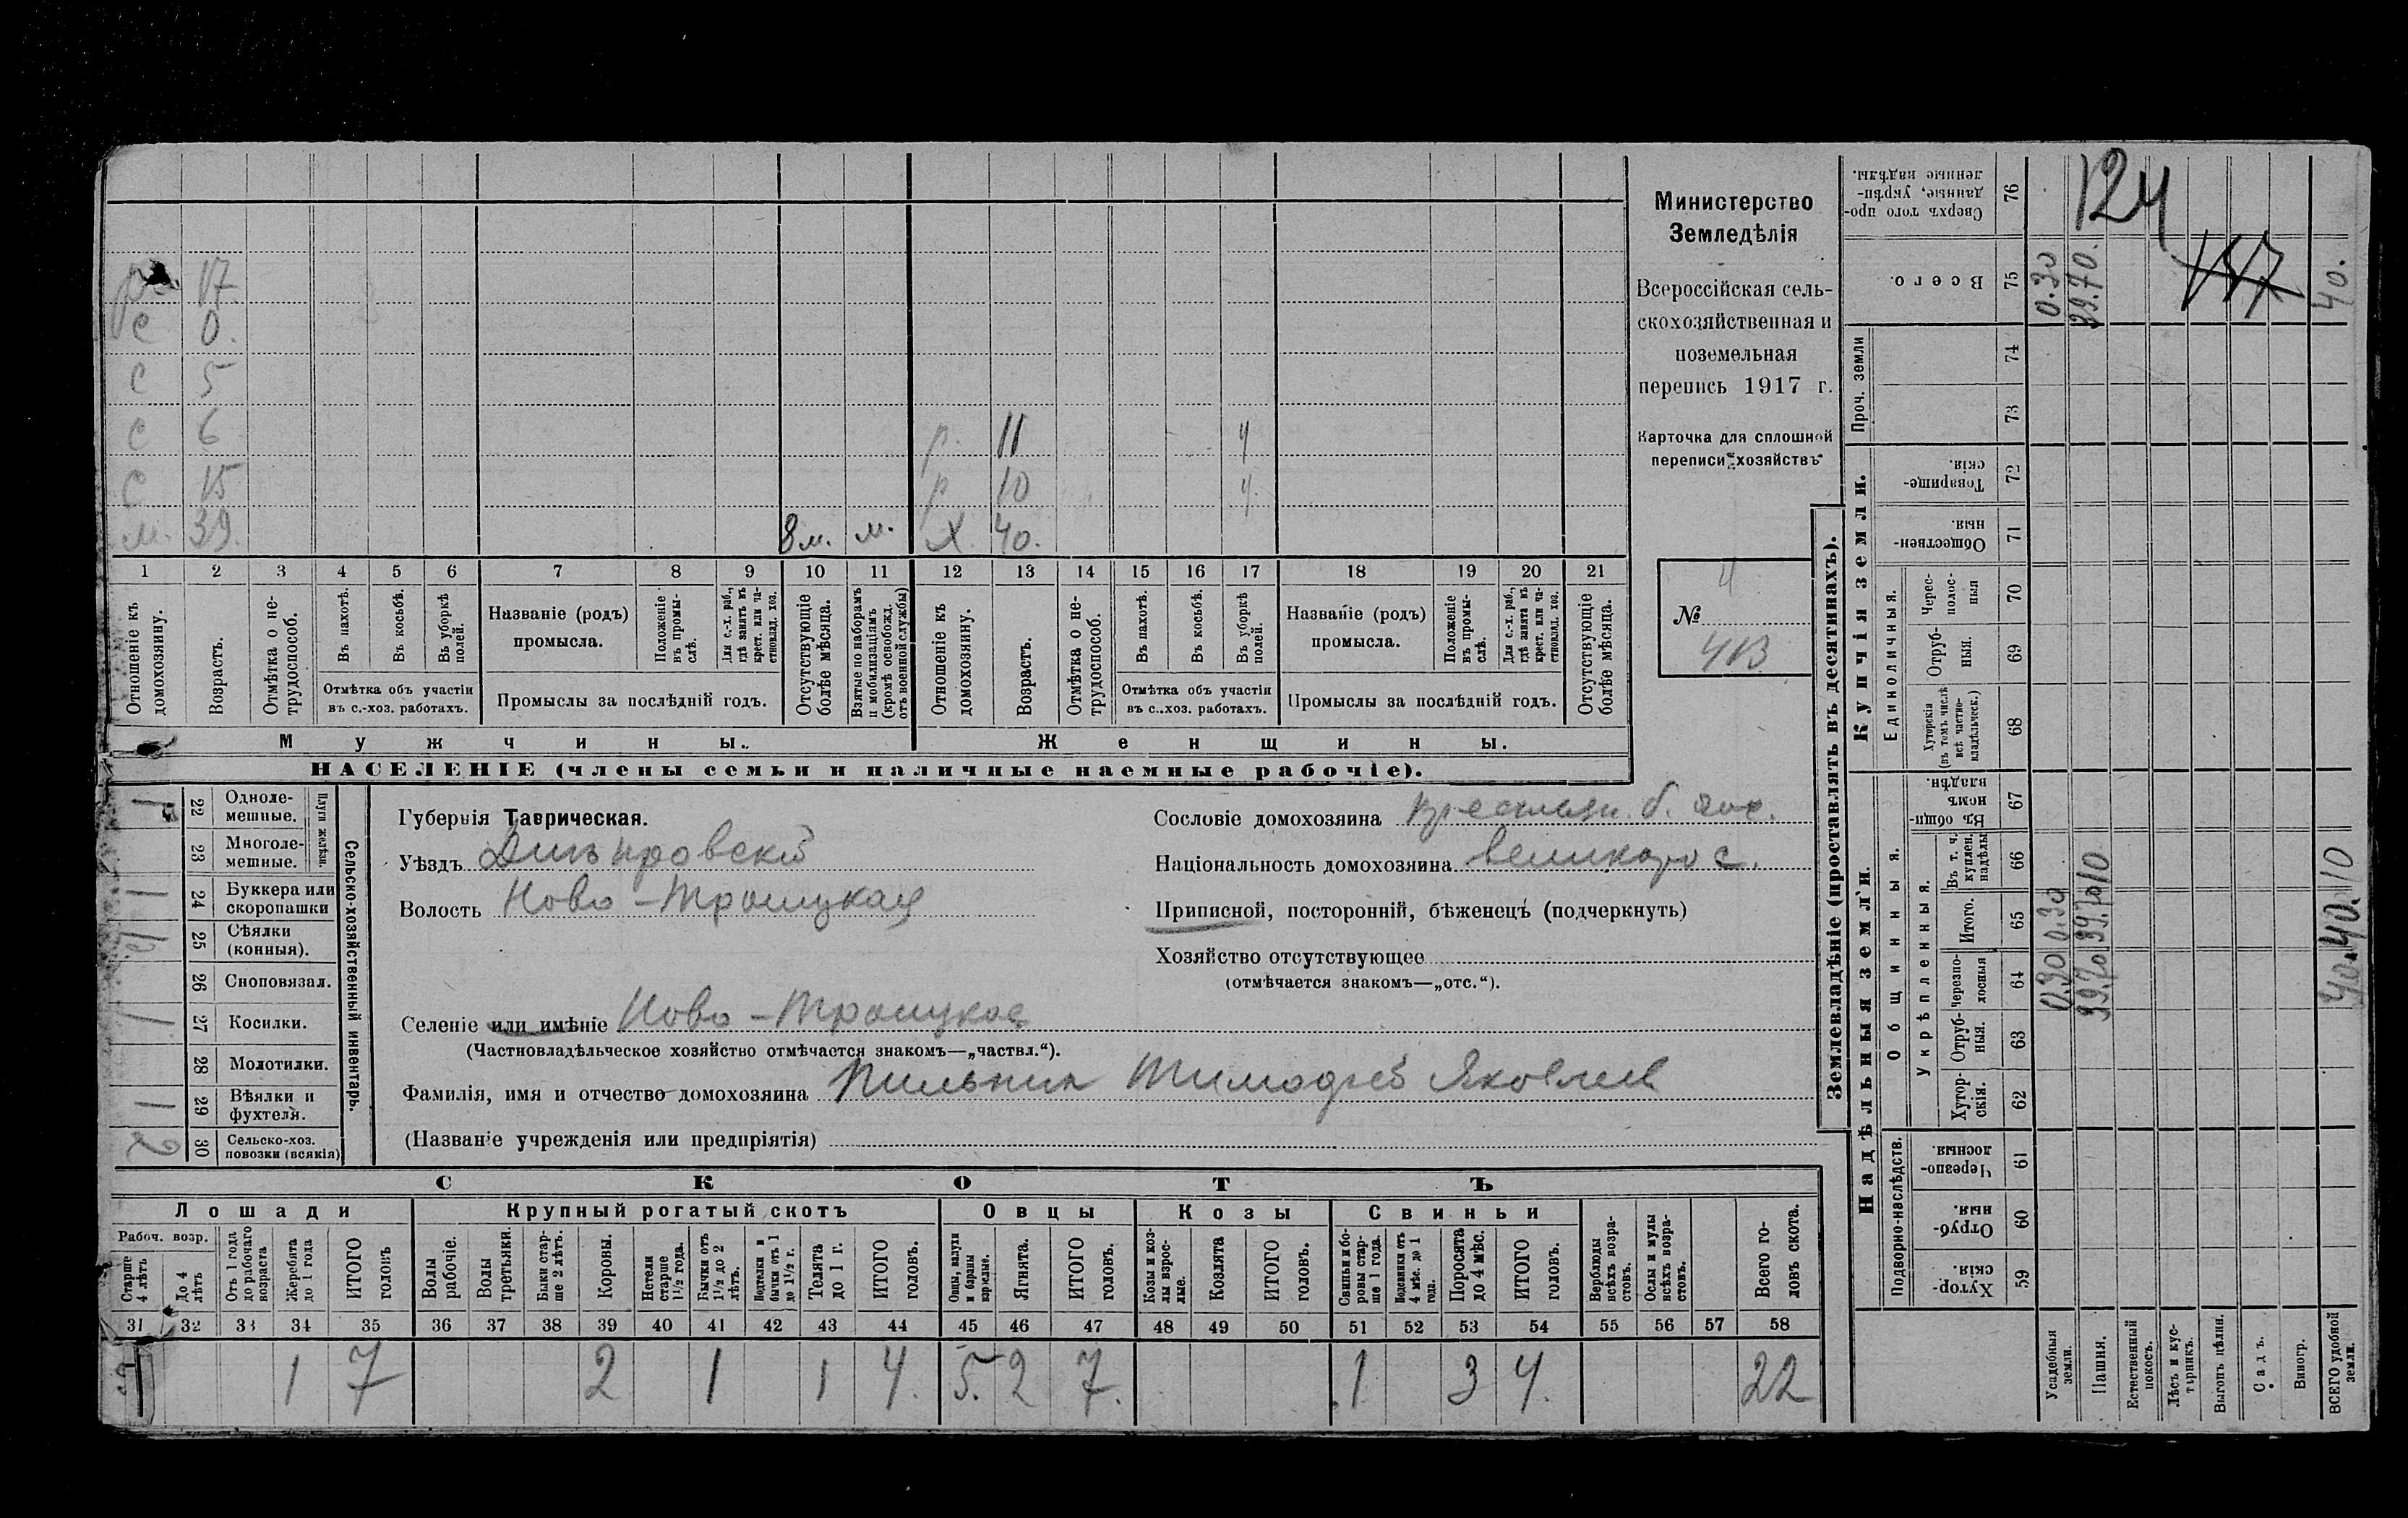 р. 17
с 0.
с 5
с 6 р. 11 ч
с 15 р 10 ч.
м. 39. 8 м. м. х 40.
1 2 3 4 5 6 7 8 9 10 11 12 13 14 15 16 17 18 19 20 21
Отношеніе къ домохозяину.
Возрастъ.
Отмѣтка о нетрудоспособ.
Въ пахотѣ.
Въ косьбѣ.
Въ уборкѣ полей.
Отмѣтка объ участіи
въ с.-хоз. работахъ.
Названіе (родъ)
промысла.
Положеніе въ промыслѣ.
Для с.-х. раб., гдѣ занятъ въ крест. или частновлад. хоз.
Промыслы за послѣдній годъ.
Отсутствующіе болѣе мѣсяца.
Взятые по наборамъ и мобилизаціямъ (кромѣ освобожд. отъ военной службы)
Отношеніе къ домохозяину.
Возрастъ.
Отмѣтка о нетрудоспособ.
Въ пахотѣ.
Въ косьбѣ.
Въ уборкѣ полей.
Отмѣтка объ участіи
въ с..хоз. работахъ.
Названіе (родъ)
промысла.
Положеніе въ промыслѣ.
Для с.-х. раб., гдѣ занята въ крест. или частновлад. хоз.
Промыслы за послѣдній годъ.
Отсутствующіе болѣе мѣсяца.
Мужчины. Женщины.
НАСЕЛЕНІЕ (члены семьи и наличные наемные рабочіе).
Министерство
Земледѣлія
Всероссійская сель-
скохозяйственная и
поземельная
перепись 1917 г.
Карточка для сплошной
переписи хозяйствъ
4
№
413
Сельско-хозяйственный инвентарь.
Плуги желѣзн.
22 Одноле-
мешные.
23 Многоле-
мешные.
1 24 Буккера или
скоропашки
1 25 Сѣялки
(конныя).
26 Сноповязал.
1 27 Косилки.
28 Молотилки.
1 29 Вѣялки и
фухтеля.
2 30 Сельско-хоз.
повозки (всякія)
Губернія Таврическая.
Уѣздъ Днѣпровскій
Волость Ново-Троицкая
Сословіе домохозяина
Національность домохозяина великорос.
Приписной, посторонній, бѣженецъ (подчеркнуть)
Хозяйство отсутствующее
(отмѣчается знакомъ—„отс.“).
Селеніе или имѣніе Ново-Троицкое
(Частновладѣльческое хозяйство отмѣчается знакомъ—„частвл.“).
Фамилія, имя и отчество домохозяина Пильник Тимофей Яковлев
(Названіе учрежденія или предпріятія)
СКОТЪ
Лошади Крупный рогатый скотъ Овцы Козы Свиньи
Рабоч. возр.
Старше 4 лѣтъ
До 4 лѣтъ
Отъ 1 года до рабочаго возраста
Жеребята до 1 года
ИТОГО головъ
Волы рабочіе.
Волы третьяки.
Быки старше 2 лѣтъ.
Коровы.
Нетели старше 1½ года.
Бычки отъ 1½ до 2 лѣтъ.
Подтелки и бычки отъ 1 до 1½ г.
Телята до 1 г.
ИТОГО головъ.
Овцы, валухи и бараны взрослые.
Ягнята.
ИТОГО головъ.
Козы и козлы взрослые.
Козлята
ИТОГО головъ.
Свиньи и боровы старше 1 года.
Подсвинки отъ 4 мѣс. до 1 года.
Поросята до 4 мѣс.
ИТОГО головъ.
Верблюды всѣхъ возрастовъ.
Ослы и мулы всѣхъ возрастовъ.
Всего головъ скота.
31 32 33 34 35 36 37 38 39 40 41 42 43 44 45 46 47 48 49 50 51 52 53 54 55 56 57 58
1 7 2 1 1 4. 5. 2 7. 1 3 4. 22
Землевладѣніе (проставлять въ десятинахъ).
Надѣльныя земли. Купчія земли. Проч. земли
Подворно-наслѣдств.
Хуторскія. 59
Отрубныя. 60
Черезполосныя. 61
Общинныя.
Укрѣпленныя.
Хуторскія. 62
Отрубныя. 63
Черезполосныя 64
Итого. 65
Въ т. ч. куплен. надѣлы 66
Въ общинномъ владѣн. 67
Единоличныя.
Хуторскія (въ томъ числѣ всѣ частновладѣльческ.) 68
Отрубныя. 69
Чересполосныя 70
Общественныя. 71
Товарищескія. 72
73
74
Всего. 75
Сверхъ того проданные, укрѣпленные надѣлы. 76
Усадебныя земли. 0.30 0.30 0.30
Пашня. 39.70 39.70 10 39.70.
Естественный покосъ.
Лѣсъ и кустарникъ.
Выгонъ цѣлин.
Садъ.
Виногр.
ВСЕГО удобной земли. 40. 40. 10 40.
124